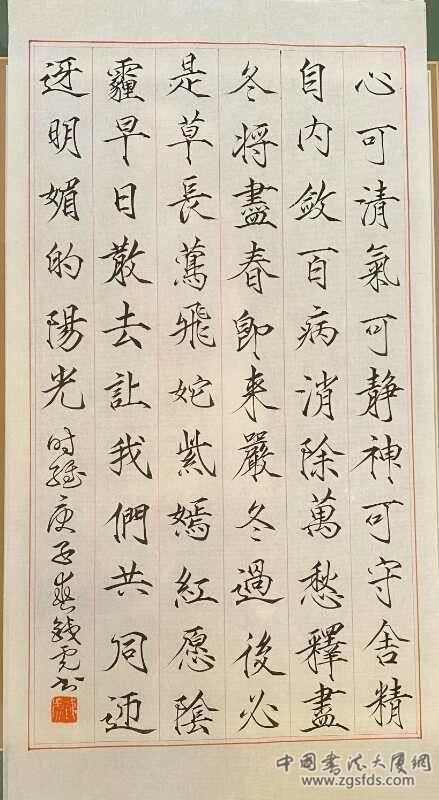 心可清氣可靜神可守舍精
自内斂百病消除萬愁釋盡
冬将盡春即来嚴冬過後必
是草長鶯飛姹紫嫣紅愿陰
霾早日散去让我們共同迎
迓明媚的陽光
时維庚子春书
中國書法大厦網
www.zgsfds.com